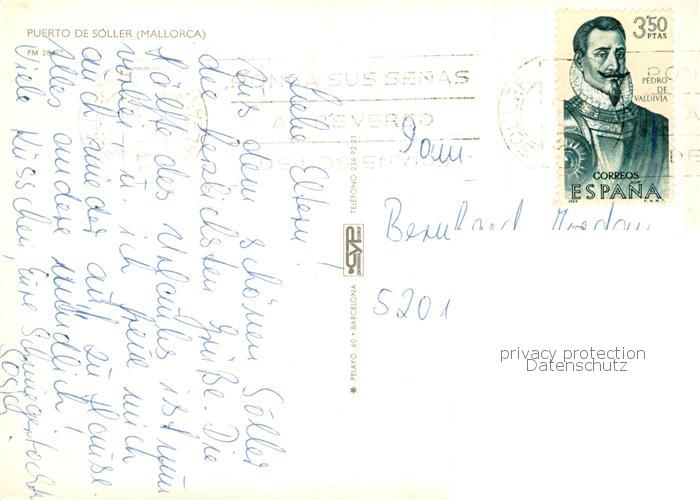 PUERTO DE SÓLLER (MALLORCA)
PM 286
Liebe Eltern!
Aus dem schönen Sóller
die herzlichsten Grüße. Die
Hälfte des Urlaubs ist nun
vorbei, u. ich freue mich
auch wieder auf zu Hause.
Alles andere mündlich!
Viele Küsschen, Eure Schwiegertochter
PONGA SUS SEÑAS
AL REVERSO
DE LOS ENVIOS
TELÉFONO 236 92 21
CYP
* PELAYO, 60 • BARCELONA
3'50
PTAS
PEDRO
DE
VALDIVIA
CORREOS
ESPAÑA
F.N.M.T.
Fam.
Bernhard
5201
privacy protection
Datenschutz